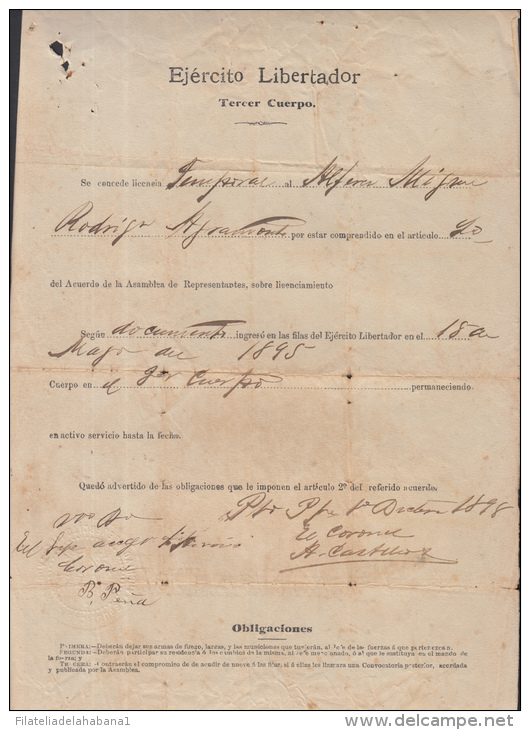 Ejército Libertador
Tercer Cuerpo.
Se concede licencia Temporal al Alferez Miguel
Rodrigo Agramonte por estar comprendido en el artículo 20
del Acuerdo de la Asamblea de Representantes, sobre licenciamiento
Según documento ingresó en las filas del Ejército Libertador en el 15 de
Mayo de 1895
Cuerpo en el 3er Cuerpo permaneciendo
en activo servicio hasta la fecha.
Quedó advertido de las obligaciones que le imponen el artículo 2º del referido acuerdo.
Pto Ppe 1º Dicbre 1898
Vo Bo
El Coronel
A. Castillo
Coronel
B. Peña
Obligaciones
PRIMERA:—Deberán dejar sus armas de fuego, largas, y las municiones que tuvieran, al Jefe de las fuerzas á que pertenezcan.
SEGUNDA:—Deberán participar su residencia ó los cambios de la misma, al Jefe mencionado, ó al que le sustituya en el mando de
la fuerza; y
TERCERA:—Contraerán el compromiso de de acudir de nuevo á las filas, si á ellas les llamara una Convocatoria posterior, acordada
y publicada por la Asamblea.
Filateliadelahabana1
delcampe.net